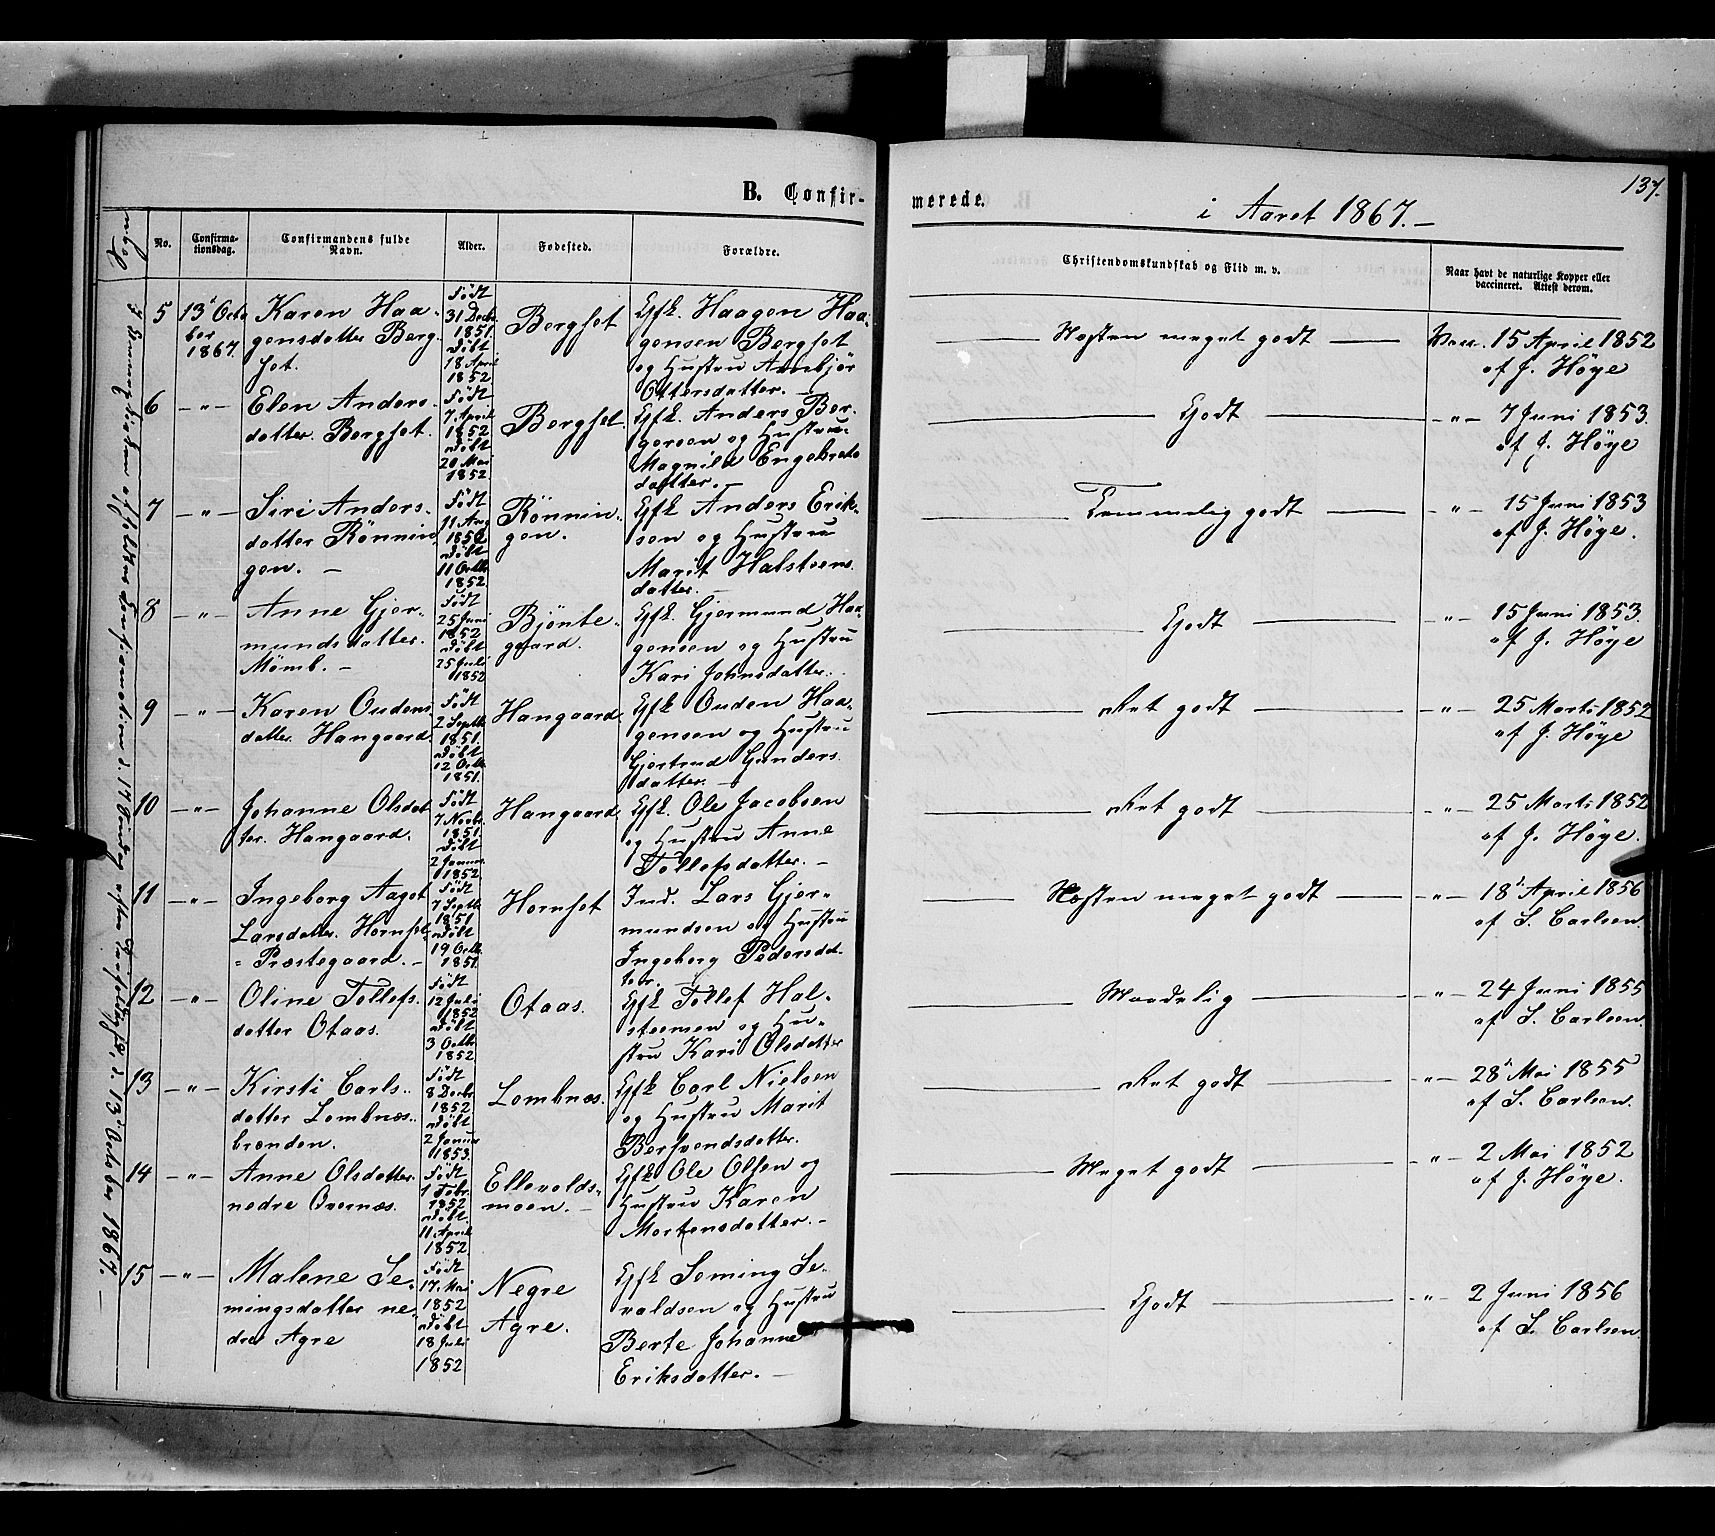 137.
B. Confir-
merede.
i Aaret 1867.-
No.
Confirma-
tionsdag.
Confirmandens fulde
Navn.
Alder.
Fødested.
Forældre.
Christendomskundskab og Flid m. v.
Naar havt de naturlige Kopper eller
vaccineret. Attest derom.
5
13de Octo
ber
1867.
Karen Haa-
gensdatter Berg-
set.
Født
31 Decbr
1851
Døbt
18 April
1852
Bergset
Gfk. Haagen Haa-
gensen Bergset
og Hustru Annbjør
Ottersdatter. -
Næsten meget godt
Vacc. 15 April 1852
af J. Høye
6
- " -
Elen Anders-
datter Bergset.
Født
7 April
1852
Døbt
20 Mai
1852
Bergset
Gfk. Anders Ber-
gersen og Hustru
Magnild Engebrets
datter. -
Godt
- " - 7 Juni 1853.
af J. Høye
7
- " -
Siri Anders-
datter Rønnin-
gen. -
Født
11 Aug
1852
Døbt
11 Octbr
1852.
Rønnin-
gen.
Gfk Anders Erik-
sen og Hustru
Marit Halsteens-
datter. -
Temmelig godt
- " - 15 Juni 1853
af J. Høye.
8
- " -
Anne Gjer-
mundsdatter
Mømb. -
Født
25 Juni
1852
Døbt
25 Juli
1852
Bjønte-
gaard.
Gfk. Gjermund Haa-
gensen og Hustru
Kari Johnsdatter.
Godt
- " - 15 Juni 1853.
af J. Høye
9
- " -
Karen Oudens
datter Hangaard.
Født
2 Septbr
1851.
Døbt
12 Octbr
1851.
Hangaard.
Gfk Ouden Haa-
gensen og Hustru
Gjertrud Gunders
datter. -
Ret godt
- " - 25 Marts 1852
af J. Høye
10
- " -
Johanne Olsdat
ter. Hangaard.
Født
7 Novbr.
1851.
Døbt
2 Januar
1852
Hangaard
Gfk. Ole Jacobsen
og Hustru Anne
Tollefsdatter. -
Ret godt
- " - 25 Marts 1852
af J. Høye.
11
- " -
Ingeborg Aaget
Larsdatter. Hornset
= Præstegaard. -
Født
7 Septbr
1851
Døbt
19 Octbr.
1851.
Hornset
Ind. Lars Gjer-
mundsen og Hustru
Ingeborg Pedersdat-
ter.
Næsten meget godt
- " - 18de April 1856
af S. Carlsen.
12
- " -
Oline Tollefs-
datter Otaas.
Født
12 Juli
1852
Døbt
3 Octbr
1852
Otaas.
Gfk Tollef Hal-
steensen og Hu-
stru Kari Olsdatter
Maadelig
- " - 24 Juni 1855
af S. Carlsen.
13
- " -
Kirsti Carls-
datter Lombnæs-
brænden.
Født
8 Decbr
1852
Døbt
2 Januar
1853.
Lombnæs.
Gfk Carl Nielsen
og Hustru Marit
Bersvendsdatter.
Ret godt
- " - 28de Mai 1855
af S. Carlsen.
14
- " -
Anne Olsdatter
nedre Overnæs.
Født
1 Febr
1852
Døbt
11 April
1852.
Ellevolds-
moen. -
Gfk Ole Olsen og
Hustru Karen
Mortensdatter. -
Meget godt
- " - 2 Mai 1852
af J. Høye.
15
- " -
Malene Se-
mingsdatter ne-
dre Agre
Født
17 Mai
1852
Døbt
18 Juli
1852
Negre
Agre.
Gfk Seming Se-
valdsen og Hustru
Berte Johanne
Eriksdatter. -
Godt
- " - 2 Juni 1856
af S. Carlsen.